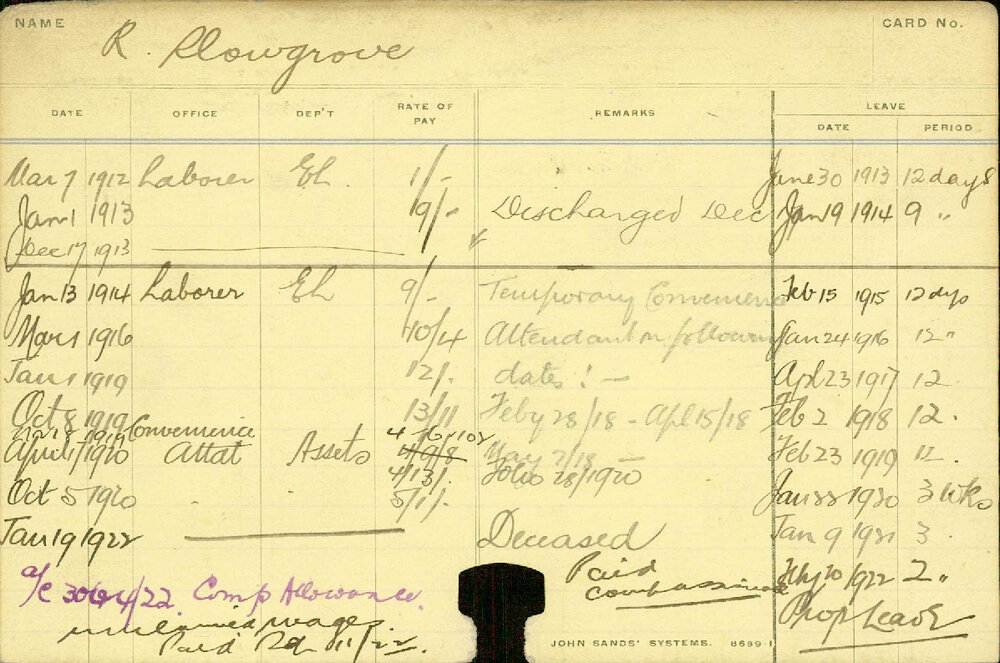 NAME R. Plowgrove CARD No.
DATE OFFICE DEP'T RATE OF PAY REMARKS LEAVE DATE PERIOD
Mar 7 1912 Laborer Eh. 1/- June 30 1913 12 days
Jan 1 1913 9/- Discharged Dec Jan 19 1914 9 "
Dec 17 1913
Jan 13 1914 Laborer Eh 9/- Temporary Convenience Feb 15 1915 12 dys
Mar 1 1916 10/4 Attendant on following Jan 24 1916 12 "
Jan 1 1919 12/. dates : — Apl 23 1917 12
Oct 8 1919 13/11 Feby 28/18 - Apl 15/18 Feb 2 1918 12 .
1919 Convenience
April 1 1920 Attdt Assets 4/9/8 May 2/18 Feb 23 1919 12 .
4/13/. Folio 28/1920
Oct 5 1920 5/1/. 1920 3 wks
Jan 19 1922 Deceased Jan 9 1921 3
a/c 3064/22. Comp Allowance. Paid Compassionate 20 1922 2 "
unclaimed wages Prop Leave
Paid 11/22.
JOHN SANDS' SYSTEMS. 8699-1